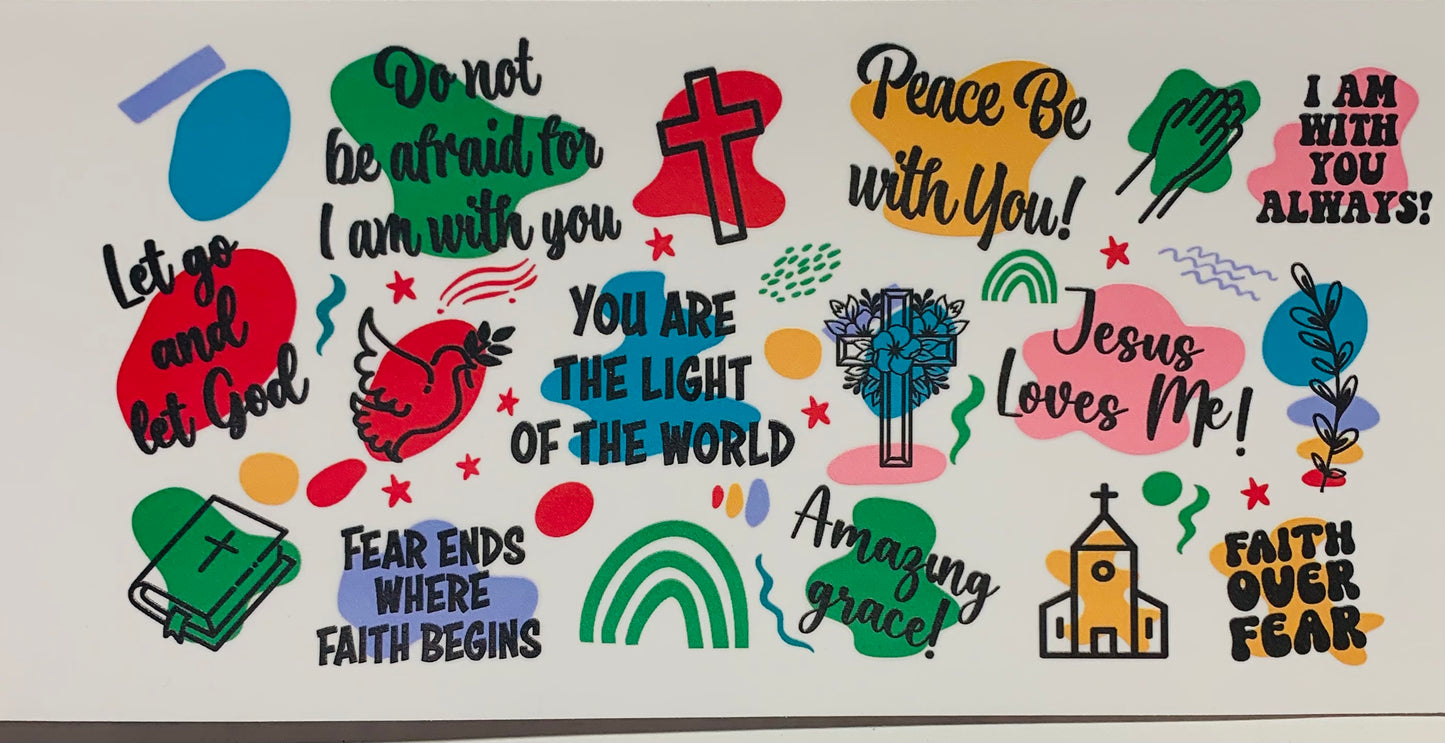 Do not
be afraid for
I am with you
Peace Be
with You!
I AM
WITH
YOU
ALWAYS!
Let go
and
let God
YOU ARE
THE LIGHT
OF THE WORLD
Jesus
Loves Me!
FEAR ENDS
WHERE
FAITH BEGINS
Amazing
grace!
FAITH
OVER
FEAR